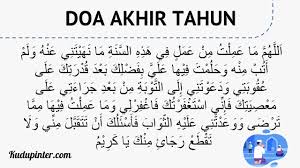 DOA AKHIR TAHUN
اَللّٰهُمَّ مَا عَمِلْتُ مِنْ عَمَلٍ فِي هٰذِهِ السَّنَةِ مَا نَهَيْتَنِي عَنْهُ وَلَمْ
أَتُبْ مِنْه وَحَلُمْتَ فِيْها عَلَيَّ بِفَضْلِكَ بَعْدَ قُدْرَتِكَ عَلَى
عُقُوبَتِي وَدَعَوْتَنِي إِلَى التَّوْبَةِ مِنْ بَعْدِ جَرَاءَتِي عَلَى
مَعْصِيَتِكَ فَإِنِّي اسْتَغْفَرْتُكَ فَاغْفِرْلِي وَمَا عَمِلْتُ فِيْهَا مِمَّا
تَرْضَى وَوَعَدْتَّنِي عَلَيْهِ الثَّوَابَ فَأَسْئَلُكَ أَنْ تَتَقَبَّلَ مِنِّي وَلَا
تَقْطَعْ رَجَائِ مِنْكَ يَا كَرِيْمُ
Kudupinter.com